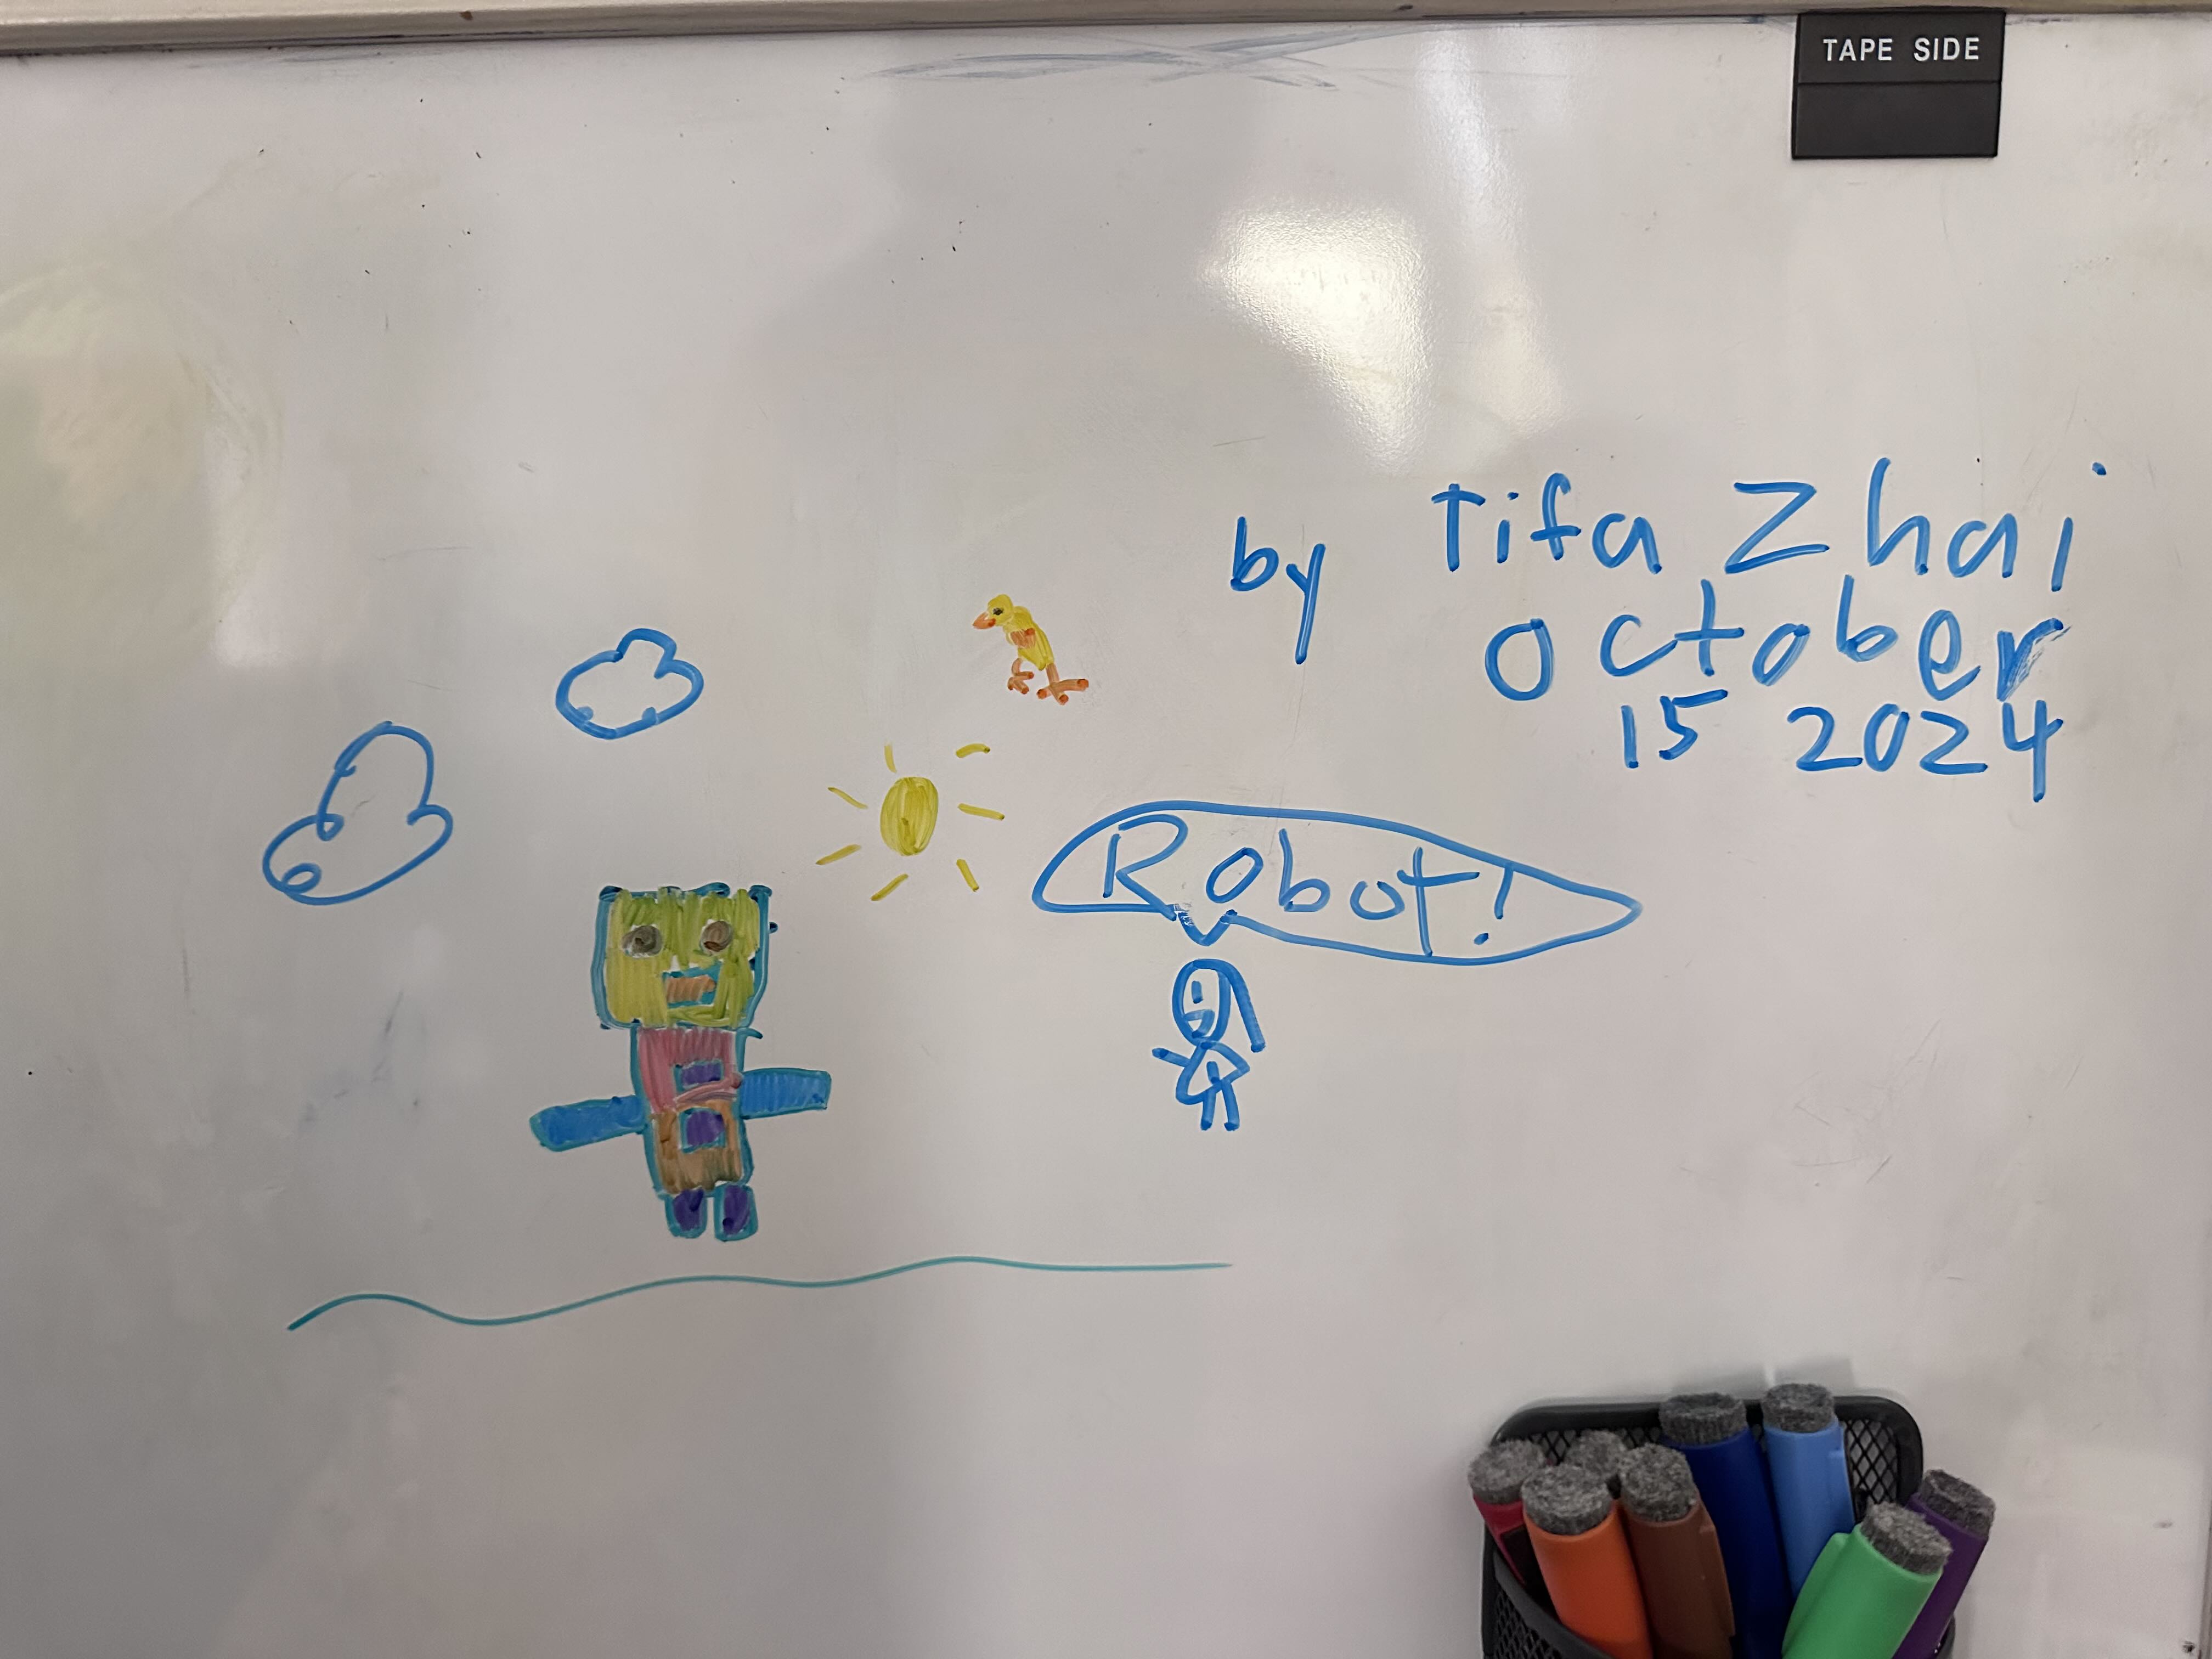 TAPE SIDE
by Tifa Zhai
October
15 2024
Robot!